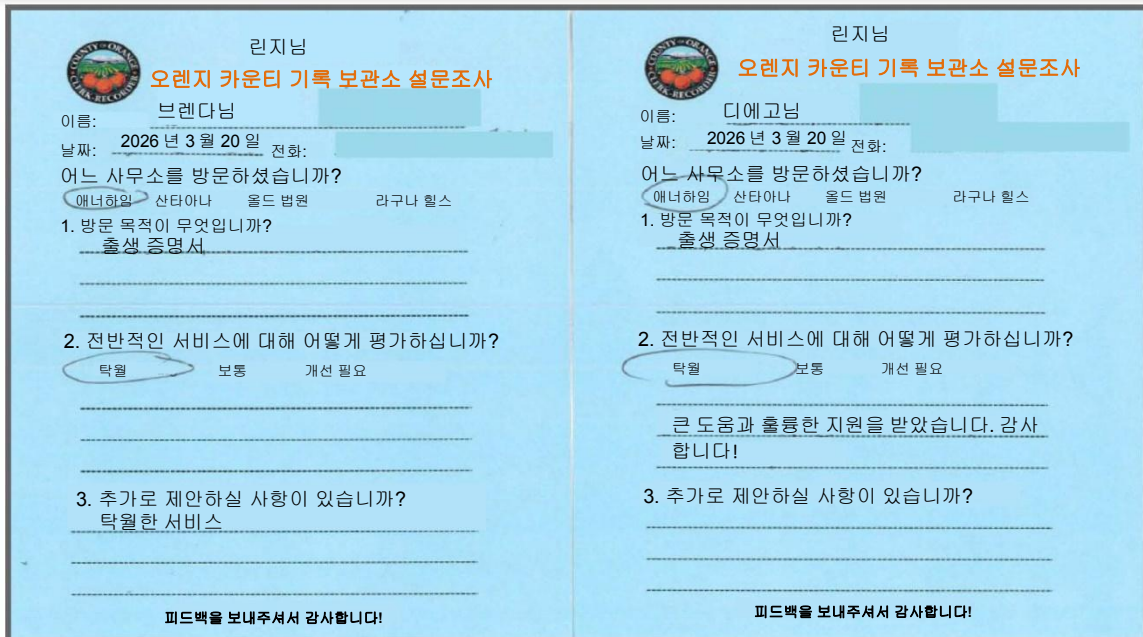 린지님
오렌지 카운티 기록 보관소 설문조사
COUNTY OF ORANGE
CLERK-RECORDER
이름: 브렌다님
날짜: 2026 년 3 월 20 일 전화:
어느 사무소를 방문하셨습니까?
애너하임 산타아나 올드 법원 라구나 힐스
1. 방문 목적이 무엇입니까?
출생 증명서
2. 전반적인 서비스에 대해 어떻게 평가하십니까?
탁월 보통 개선 필요
3. 추가로 제안하실 사항이 있습니까?
탁월한 서비스
피드백을 보내주셔서 감사합니다!
린지님
오렌지 카운티 기록 보관소 설문조사
COUNTY OF ORANGE
CLERK-RECORDER
이름: 디에고님
날짜: 2026 년 3 월 20 일 전화:
어느 사무소를 방문하셨습니까?
애너하임 산타아나 올드 법원 라구나 힐스
1. 방문 목적이 무엇입니까?
출생 증명서
2. 전반적인 서비스에 대해 어떻게 평가하십니까?
탁월 보통 개선 필요
큰 도움과 훌륭한 지원을 받았습니다. 감사
합니다!
3. 추가로 제안하실 사항이 있습니까?
피드백을 보내주셔서 감사합니다!